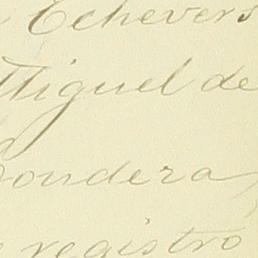 Echevers
Miguel de
ondera,
registro